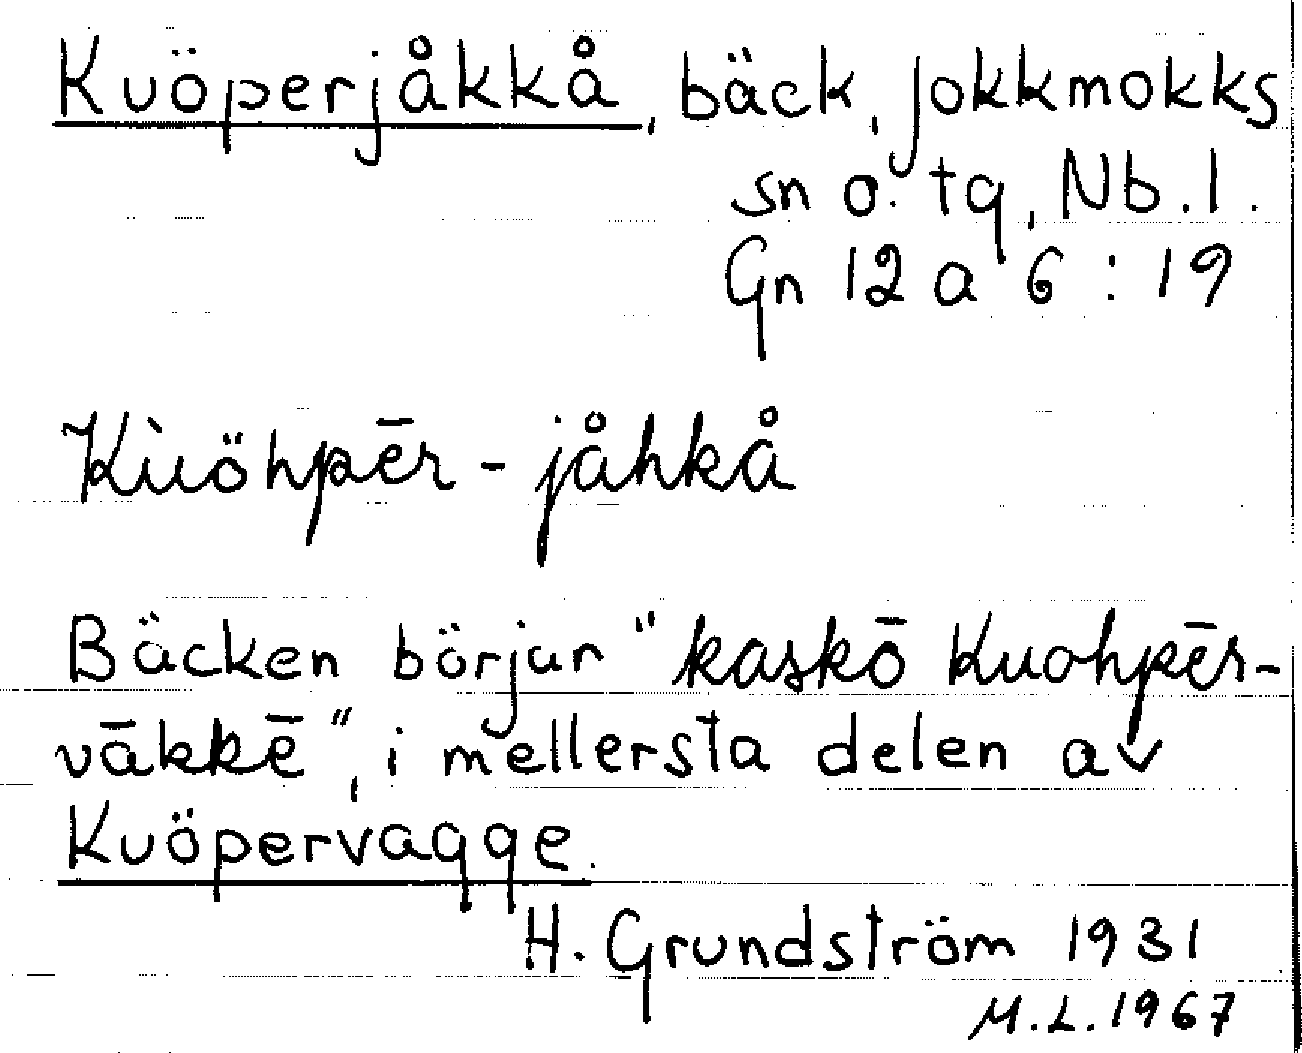 Kuöperjåkkå, bäck, Jokkmokks
sn o. tg, Nb. l.
Gn 12 a 6 : 19
Kùöhpēr - jåhkå
Bäcken börjar "kaskō Kuohpēr-
vākkē", i mellersta delen av
Kuöpervagge.
H. Grundström 1931
M.L. 1967